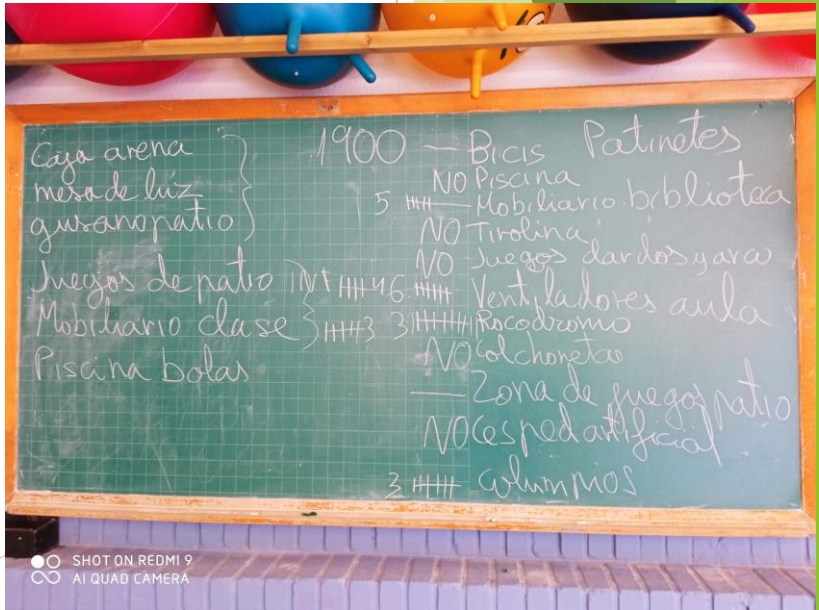 Caja arena
mesa de luz
gusano patio
Juegos de patio INT 46
Mobiliario clase 3
Piscina bolas
1900 — Bicis Patinetes
NO Piscina
5 — Mobiliario biblioteca
NO Tirolina
NO Juegos dardos y aro
Ventiladores aula
3 Rocodromo
NO Colchonetas
— Zona de juegos patio
NO Cesped artificial
3 Columpios
SHOT ON REDMI 9
AI QUAD CAMERA